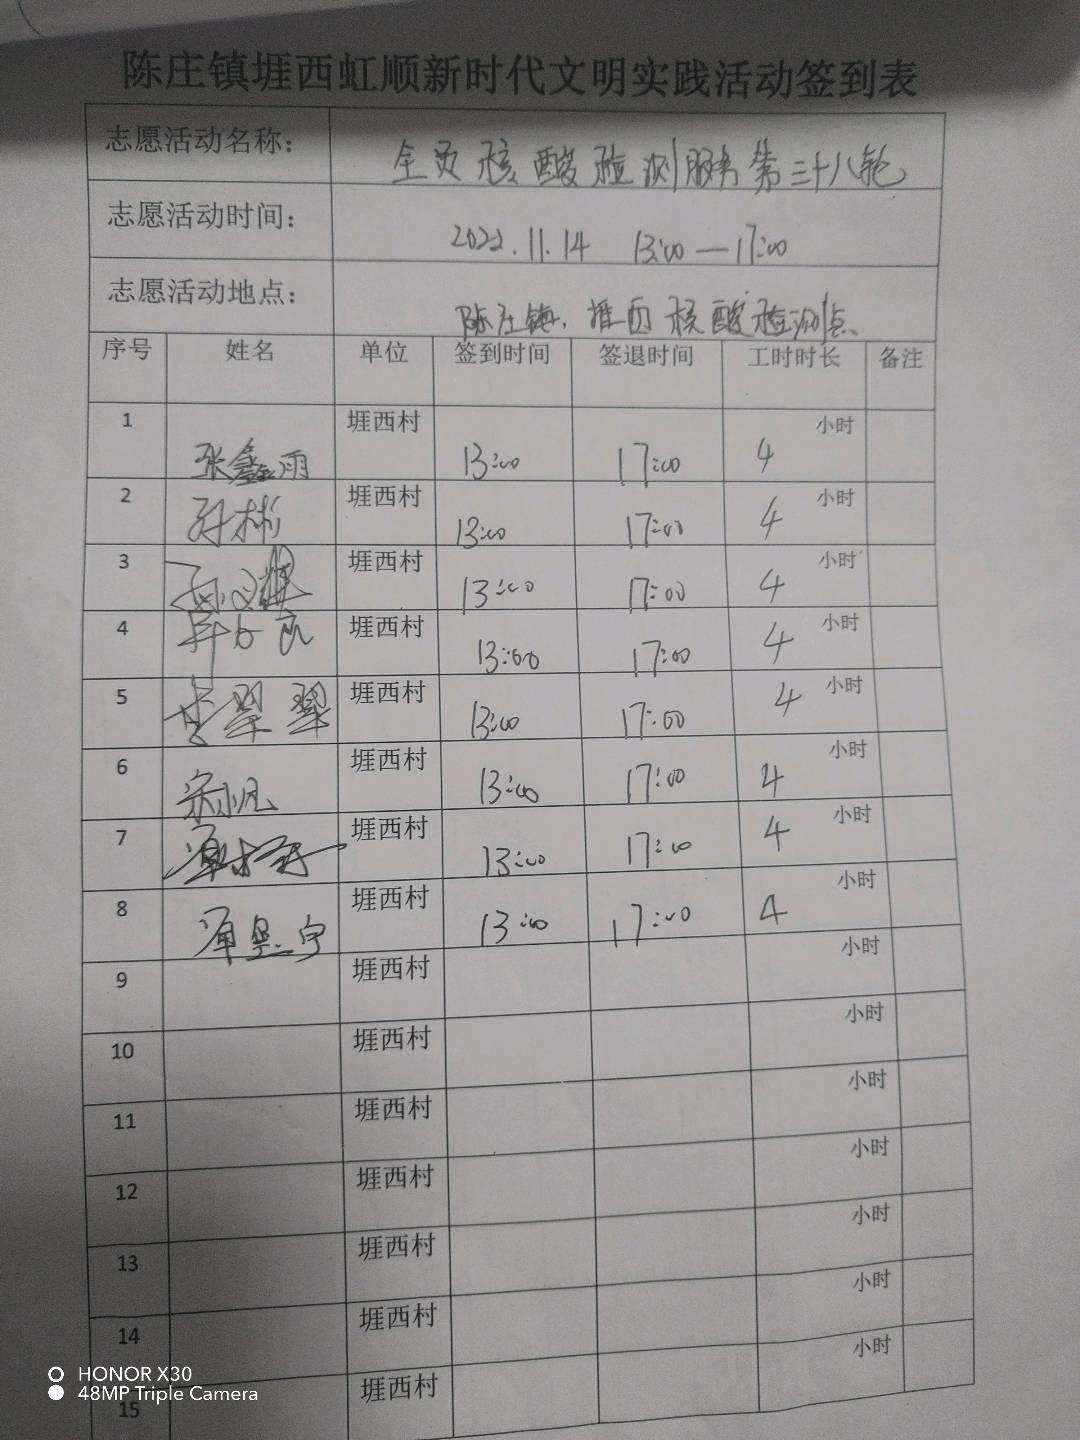 陈庄镇堐西虹顺新时代文明实践活动签到表
志愿活动名称： 全员核酸检测服务第三十八轮
志愿活动时间： 2022.11.14 13:00—17:00
志愿活动地点： 陈庄镇 核酸检测点
序号 姓名 单位 签到时间 签退时间 工时时长 备注
1 张鑫雨 堐西村 13:00 17:00 4 小时
2 孙彬 堐西村 13:00 17:00 4 小时
3 堐西村 13:00 17:00 4 小时
4 堐西村 13:00 17:00 4 小时
5 李翠翠 堐西村 13:00 17:00 4 小时
6 堐西村 13:00 17:00 4 小时
7 堐西村 13:00 17:00 4 小时
8 堐西村 13:00 17:00 4 小时
9 堐西村 小时
10 堐西村 小时
11 堐西村 小时
12 堐西村 小时
13 堐西村 小时
14 堐西村 小时
15 堐西村 小时
HONOR X30
48MP Triple Camera